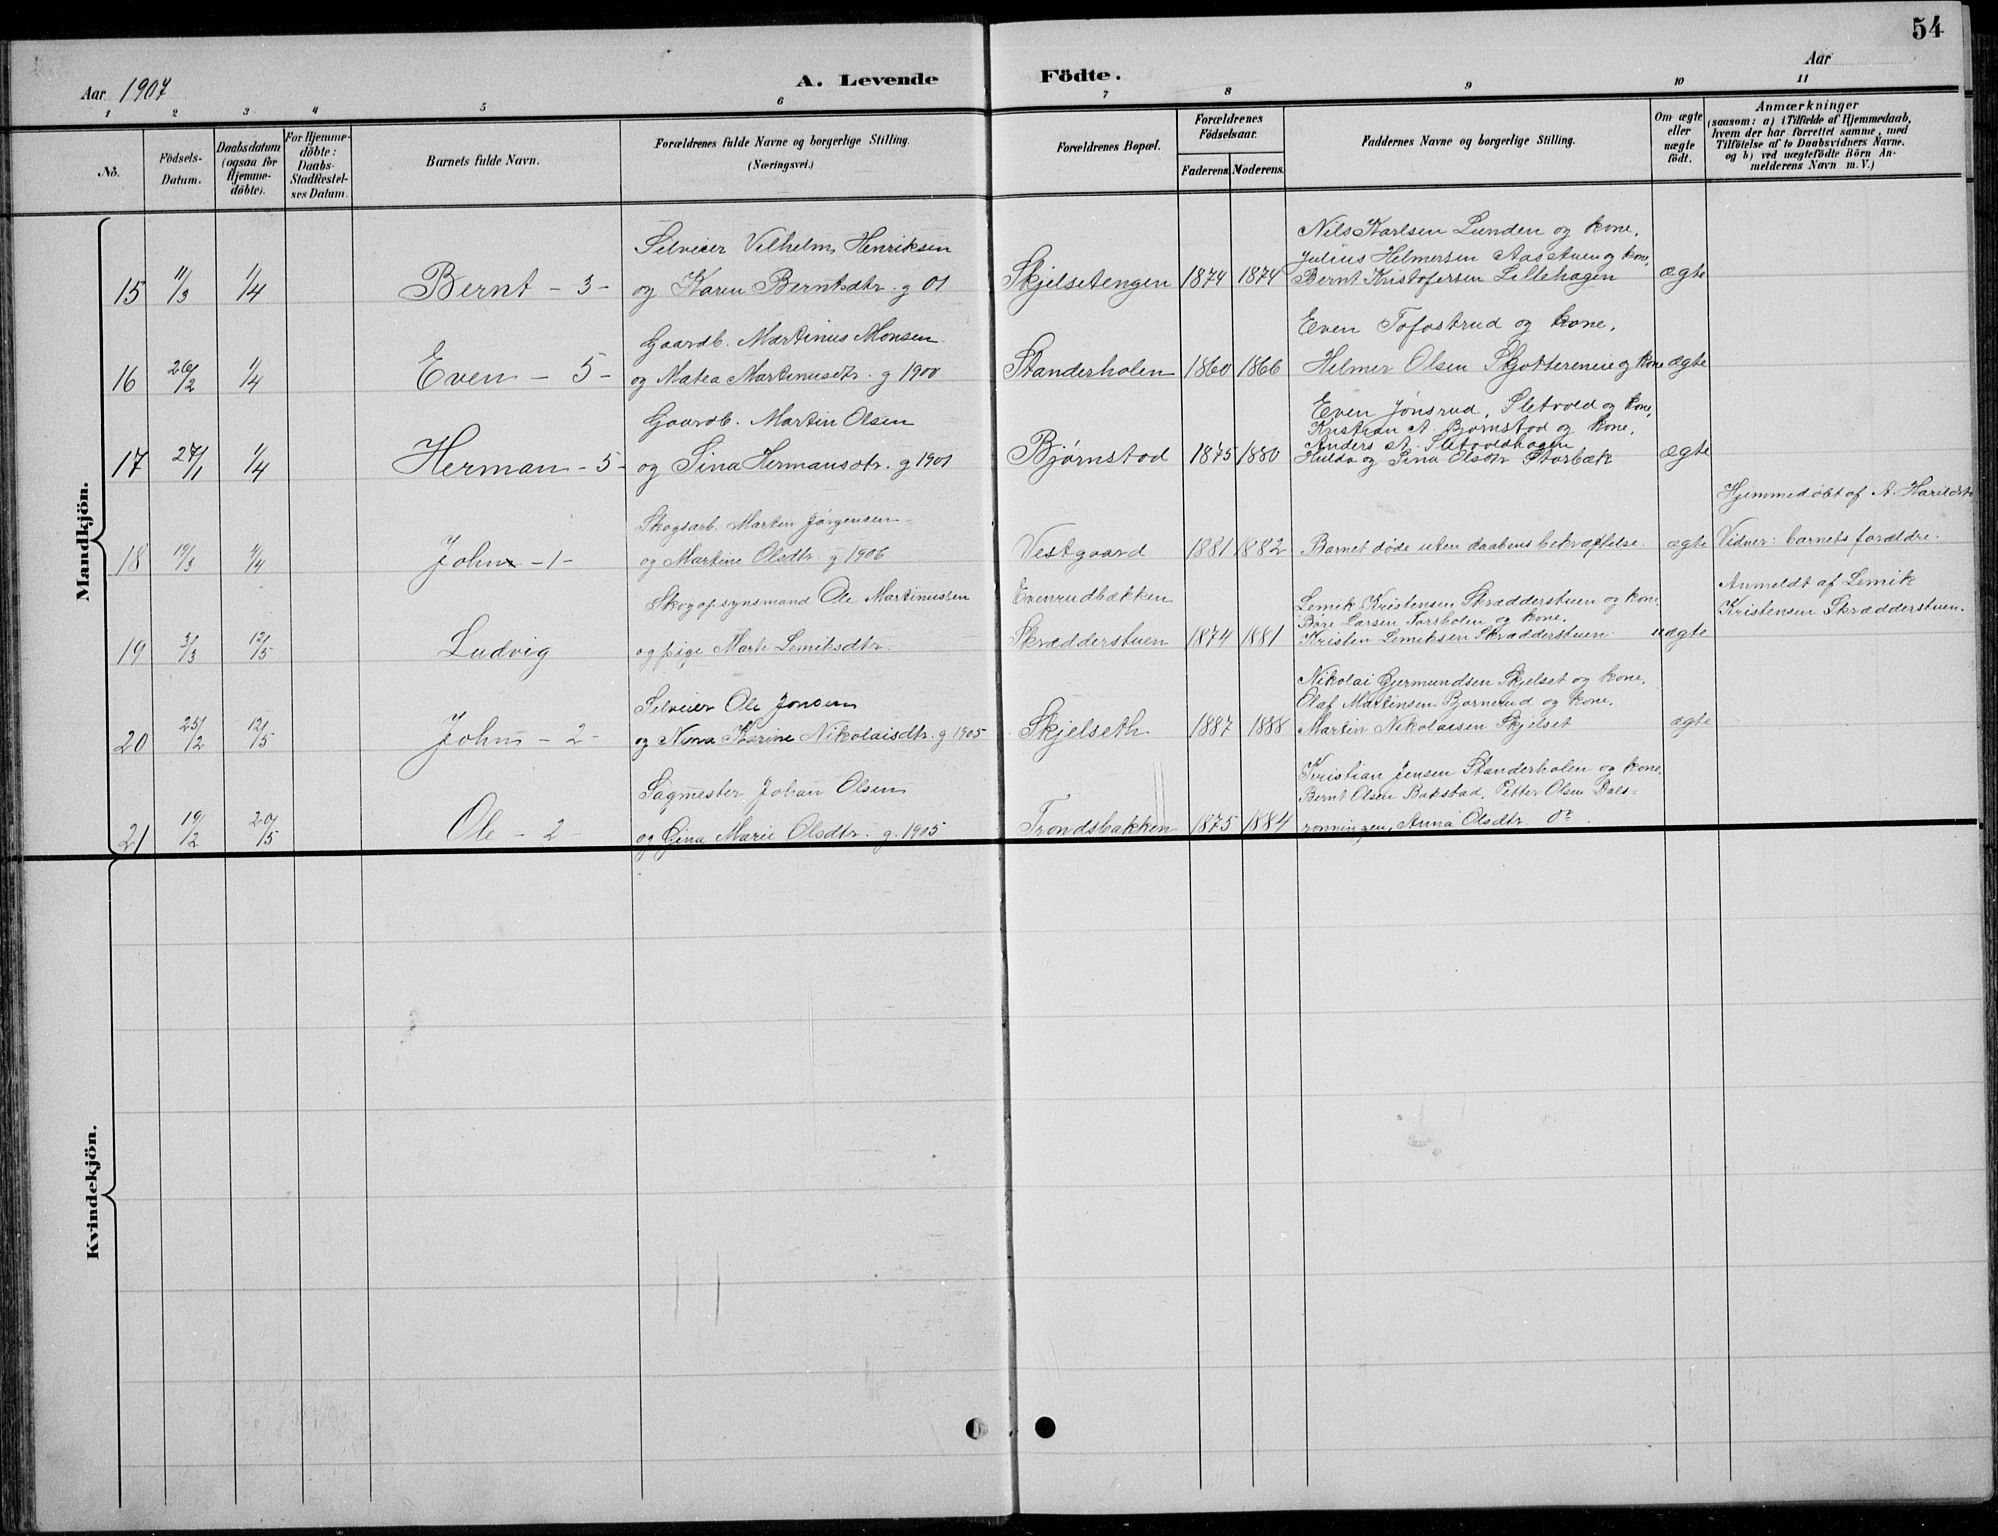 54
Aar 1907
A. Levende Födte.
Aar
1 2 3 4 5 6 7 8 9 10 11
No.
Födsels-Datum.
Daabsdatum (ogsaa for Hjemme-döbte).
For Hjemme-döbte: Daabs-Stadfæstel-ses Datum.
Barnets fulde Navn.
Forældrenes fulde Navne og borgerlige Stilling.
(Næringsvei.)
Forældrenes Bopæl.
Forældrenes Födselsaar.
Faderens. Moderens.
Faddernes Navne og borgerlige Stilling.
Om ægte eller uægte födt.
Anmærkninger
(saasom: a) i Tilfælde af Hjemmedaab,
hvem der har forrettet samme, med
Tilföielse af to Daabsvidners Navne.
og b) ved uægtefödte Börn An-
melderens Navn m. V.)
Mandkjön.
Selveier Vilhelm Henriksen
Nils Karlsen Lunden og kone,
Julius Helmersen Aasstuen og kone,
15 11/3 1/4 Bernt - 3 - og Karen Berntsdtr. g 01 Skjelsetengen 1874 1874 Bernt Kristofersen Lillehagen ægte
Gaardb. Martinus Monsen
Even Tofastrud og kone,
16 26/2 1/4 Even - 5 - og Matea Martinusdtr. g 1900 Standerholen 1860 1866 Helmer Olsen og kone ægte
Gaardb. Martin Olsen
Even Jønsrud, Sletvold og kone,
Kristian A. Bjørnstad og kone,
Anders A. Sletvoldhagen
17 27/1 1/4 Herman - 5 - og Sina Hermansdtr. g 1901 Bjørnstad 1875 1880 Hulda og Sina Olsdtr Storbæk ægte
Skogsarb. Martin Jørgensen
Hjemmedøbt af A.
18 19/3 1/4 John - 1 - og Martine Olsdtr g 1906 Vestgaard 1881 1882 Barnet døde uten daabens bekræftelse. ægte Vidner: barnets forældre.
Skogopsynsmand Ole Martinussen
Evenrudbækken
Lemik Kristensen Skrædderstuen og kone,
Anmeldt af Lemik
Kristensen Skrædderstuen.
Bare Larsen Torsholen og kone,
19 3/3 12/5 Ludvig og pige Marte Lemiksdtr. Skrædderstuen 1874 1881 Kristen Lemiksen Skrædderstuen. uægte
Selveier Ole Jonsen
Nikolai Gjermundsen Skjelset og kone,
Olaf Martinsen Bjørnerud og kone,
20 25/2 12/5 John - 2 - og Nina Karine Nikolaisdtr. g 1905 Skjelseth 1887 1888 Martin Nikolaisen Skjelset ægte
Sagmester Johan Olsen
Kristian Jensen Standerholen og kone,
Bernt Olsen Bakstad, Petter Olsen Dals-
21 19/2 20/5 Ole - 2 og Gina Marie Olsdtr. g. 1905 Trondsbakken 1875 1884 rønningen, Anna Olsdtr do.
Kvindekjön.